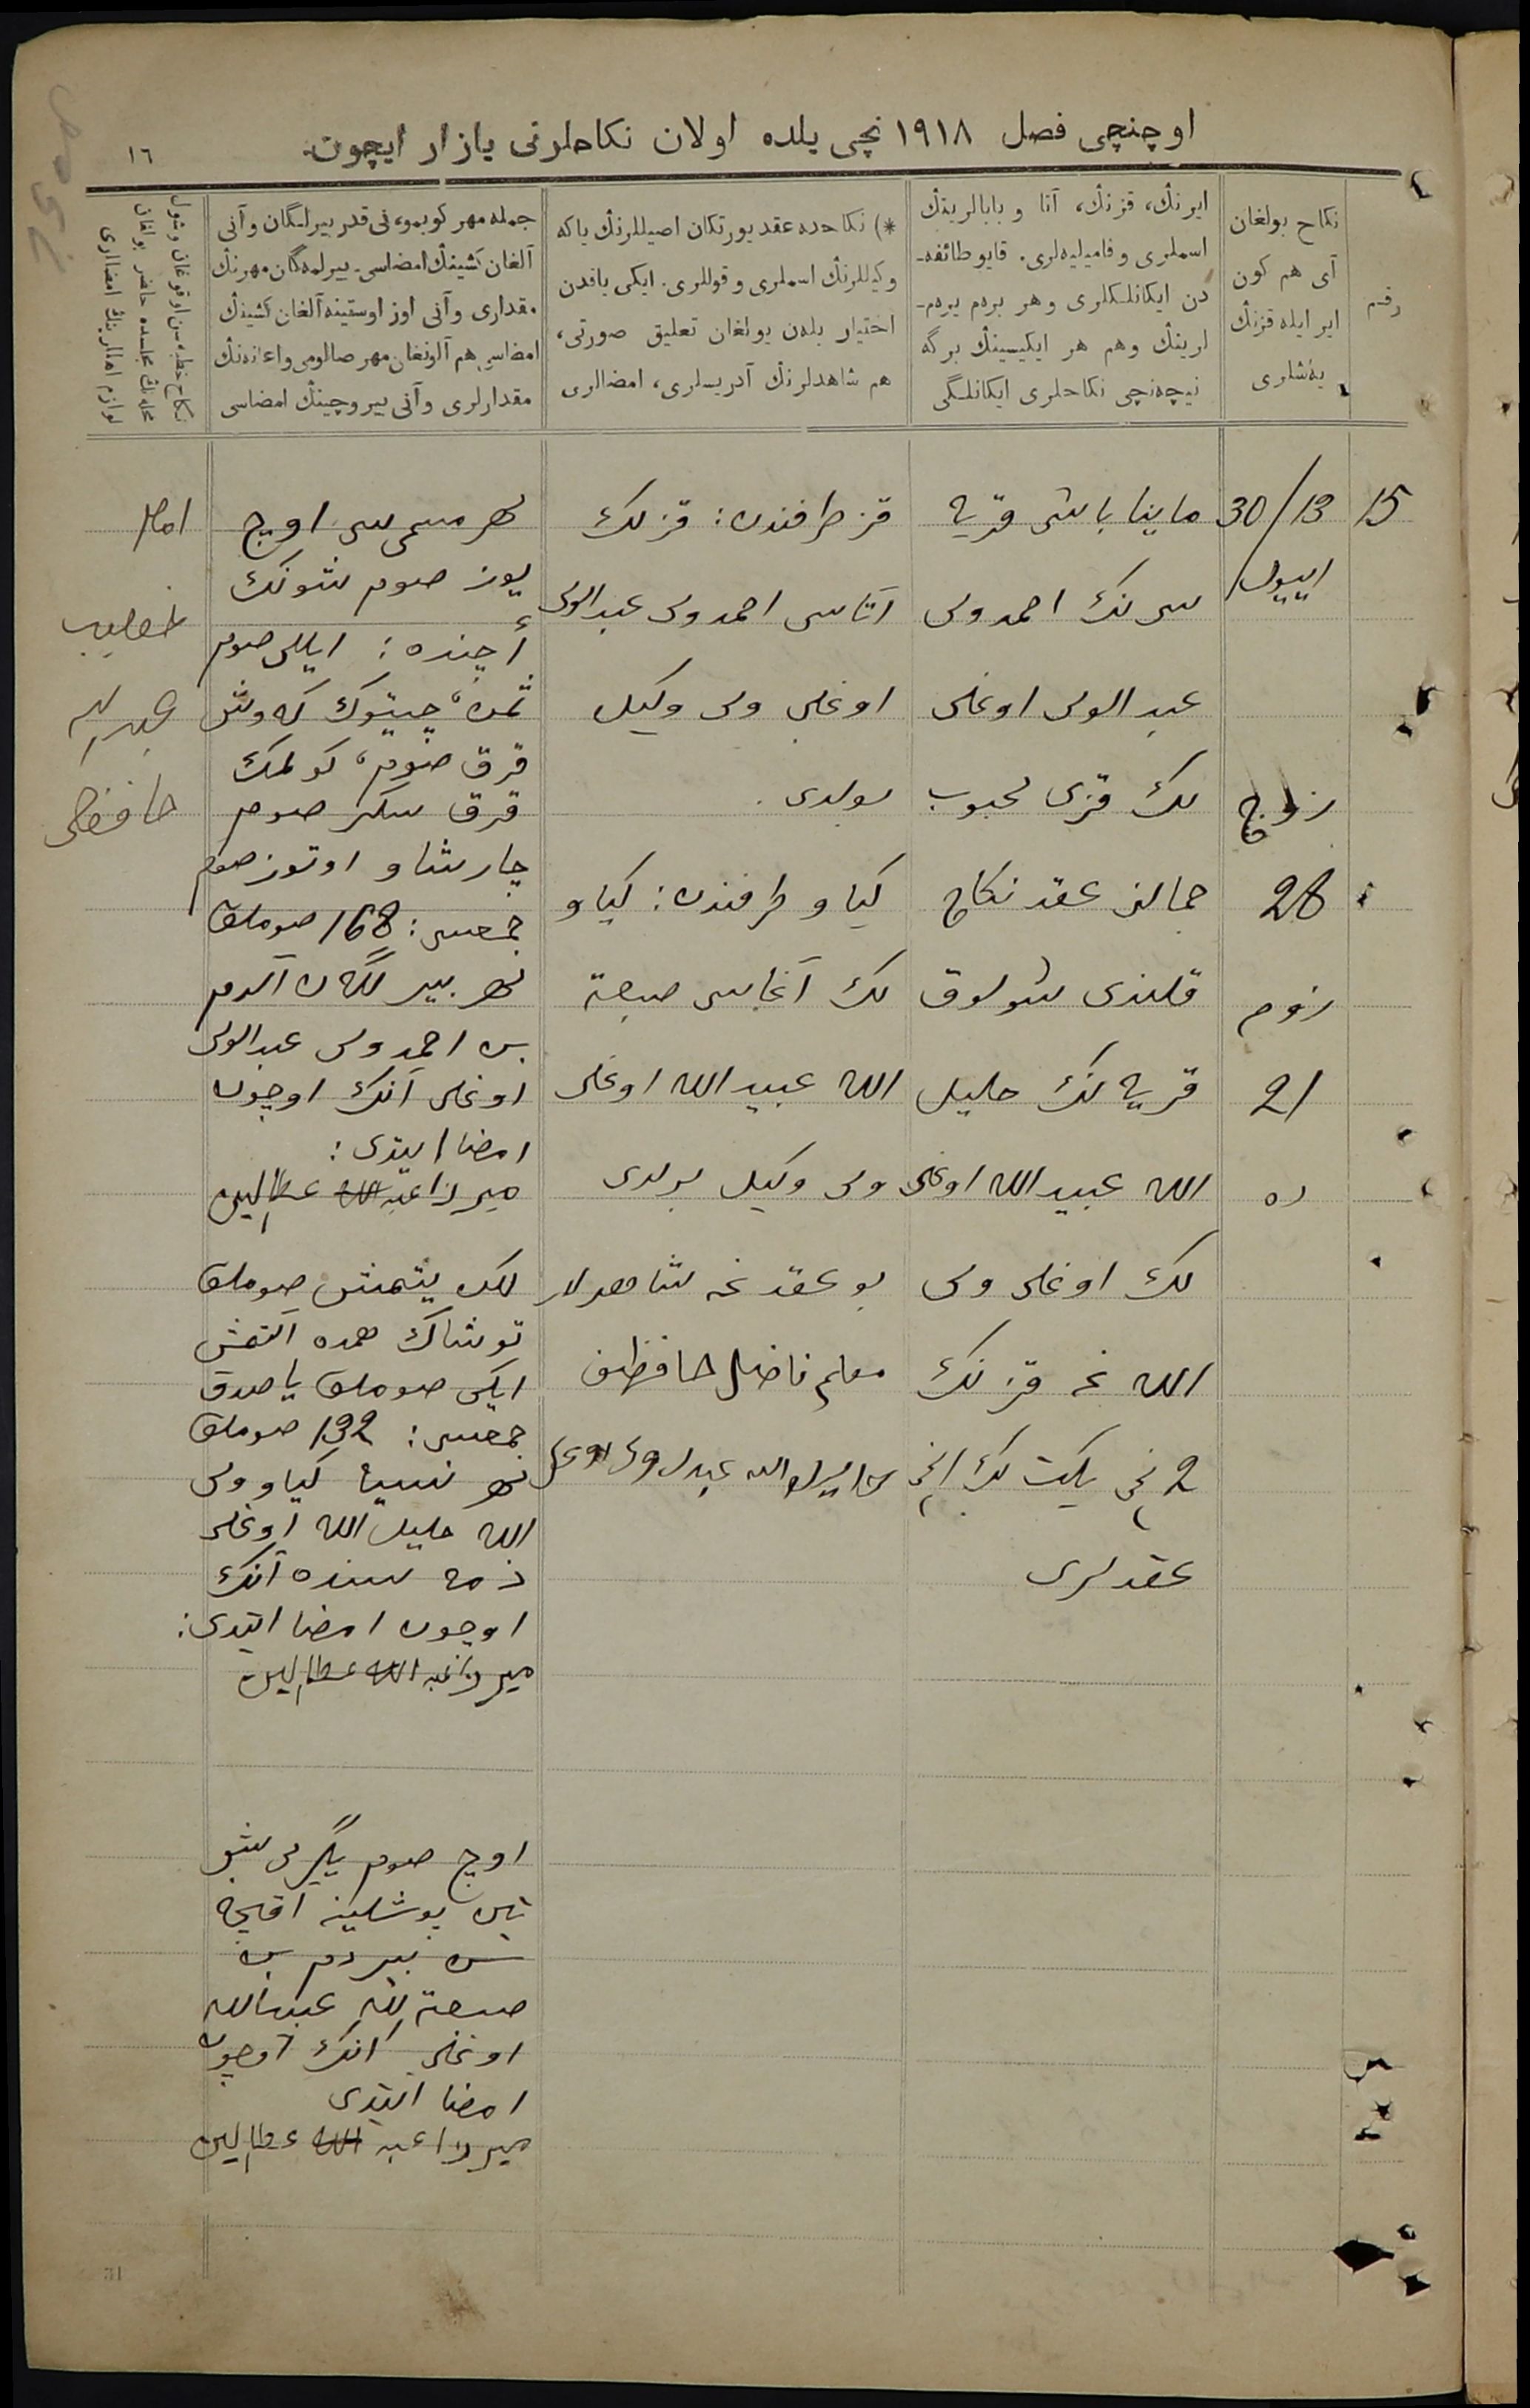 اوچنچی فصل ۱۹۱۸ نچی یلده اولان نکاحلرنی یازار ایچون
١٦
رقم
نکاح بولغان
آی هم کون
ایر ایله قزنڭ
یەشلری
ایرنڭ، قزنڭ، آتا و بابالرینڭ
اسملری و فامیلیەلری. قایو طائفه-
دن ایکانلکلری وهر برەم برەم-
لرینڭ وهم هر ایکیسینڭ برگه
نیچەنچی نکاحلری ایکانلگی
*) نکاحده عقد یورتکان اصیللرنڭ یاکه
وکیللرنڭ اسملری و قوللری. ایکی یاقدن
اختیار بلەن بولغان تعلیق صورتی،
هم شاهدلرنڭ آدریسلری، امضالری
جمله مهر کوبمو، نی قدر بیرلگان وآنی
آلغان کشینڭ امضاسی. بیرلمەگان مهرنڭ
مقداری وآنی اوز اوستینه آلغان کشینڭ
امضاسی هم آلونغان مهر صالومی واعانەنڭ
مقدارلری وآنی بیروچینڭ امضاسی
نکاح خطبەسن اوقوغان وشول
محلەنڭ مجلسده حاضر بولغان
لوازم اهللرینڭ امضالری
15
30/13
اییول
زوج
28
زوجه
21
ده
ماینا باشی قریه
سی نڭ احمدولی
عبد الولی اوغلی
نڭ قزی محبوب
جمالنی عقد نکاح
قلندی شولوق
قریه نڭ خلیل
الله عبید الله اوغلی
نڭ اوغلی ولی
الله غه قزنڭ
2 نچی یکت نڭ نچی
عقدلری
قز طرافندن: قزنڭ
آتاسی احمدولی عبدالولی
اوغلی ولی وکیل
بولدی.
کیاو طرافندن: کیاو
نڭ آغاسی صبغة
الله عبید الله اوغلی
ولی وکیل بولدی
بو عقد غه شاهدلر
معلم فاضل حافظف
مهر مسمی سی اوچ
یوز صوم شونڭ
أچنده: ایللی صوم
ثمن، چیتوك که وش
قرق صوم، کولمك
قرق سکز صوم
چارشاو اوتوز صوم
جمعسی: 168 صوملق
مهر بیرلگەن آلدم
بن احمدولی عبدالولی
اوغلی آنڭ اوچون
امضا ایتدی:
یتمش صوملق
توشاك همده آلتمش
ایکی صوملق یاصدق
جمعسی: 132 صوملق
مهر نسیا کیاو ولی
الله خلیل الله اوغلی
ذمه سنده آنڭ
اوچون امضا ایتدی:
اوچ صوم یگرمی بش
تین بوشلینه آقچه
سن بیردم بن
صبغة الله عبیدالله
اوغلی آنڭ اوچون
امضا ایتدی
امام
خطیب
حافظی
31